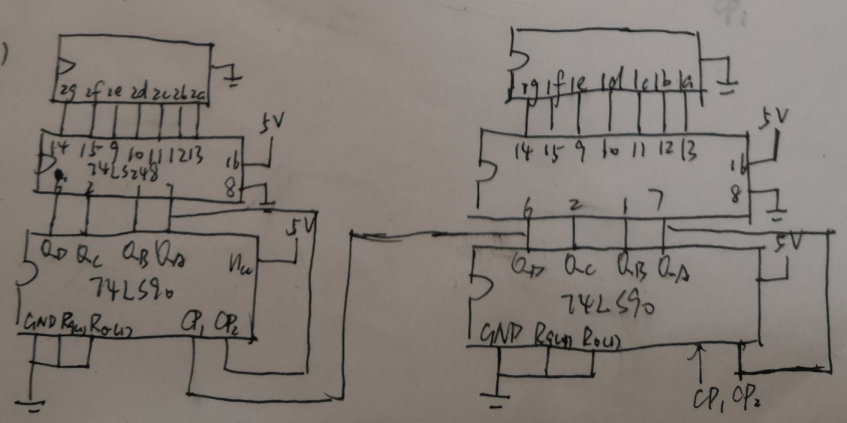 )
CP1
2g 2f 2e 2d 2c 2b 2a
14 15 9 10 11 12 13
16
5V
74LS248
8
6 2 1 7
QD QC QB QA
Vcc
5V
74LS90
GND R9(1) R0(1) CP1 CP2
1g 1f 1e 1d 1c 1b 1a
14 15 9 10 11 12 13
16
5V
8
6 2 1 7
QD QC QB QA
5V
74LS90
GND R9(1) R0(1)
CP1 CP2